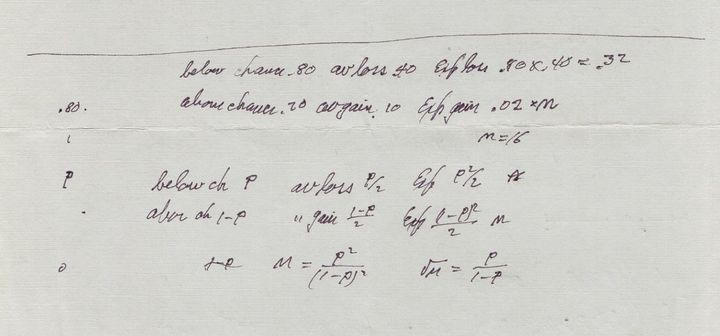 below chance .80 av loss .40 Exp loss .80 x .40 = .32
.80. above chance .20 av gain .10 Exp gain .02 × M
1 M=16
P below ch P av loss P/2 Exp P²/2
above ch 1-P " gain 1-P/2 Exp (1-P)²/2 M
0 1-P M = P²/(1-P)² √M = P/1-P